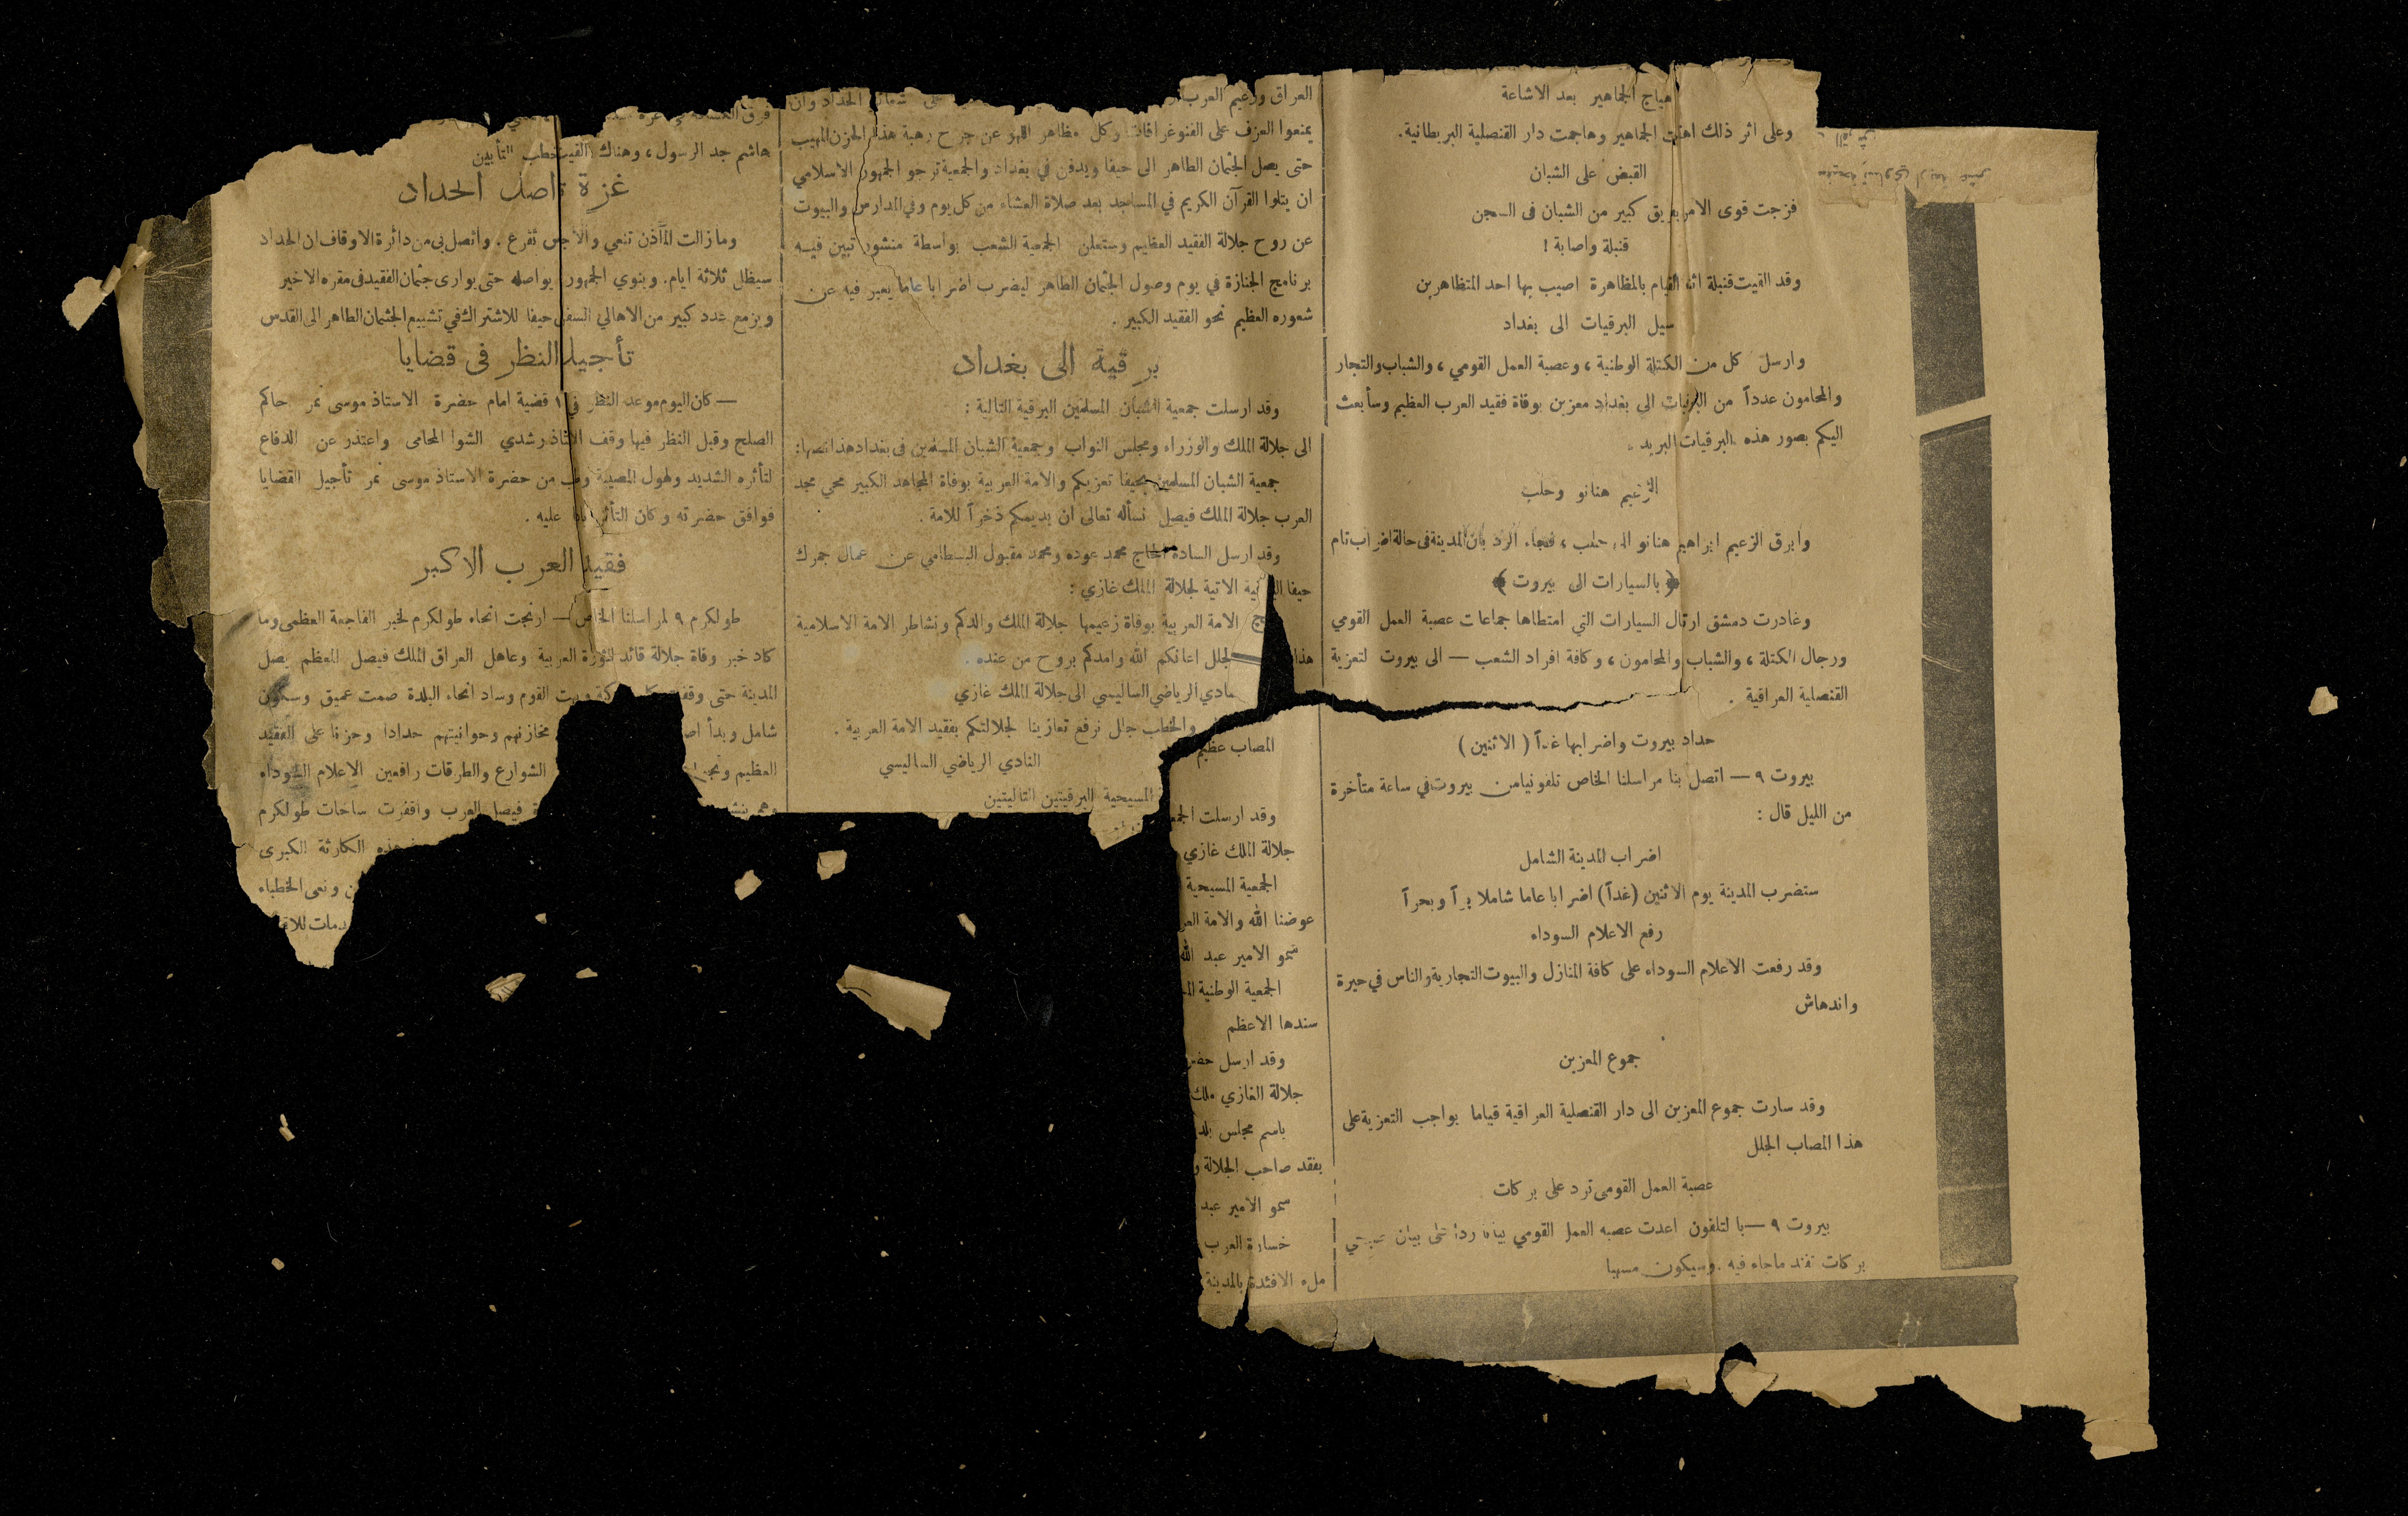 هياج الجماهير بعد الاشاعة
وعلى اثر ذلك اهتاجت الجماهير وهاجمت دار القنصلية البريطانية.
القبض على الشبان
فزجت قوى الامن بفريق كبير من الشبان فى السجن
قنبلة واصابة !
وقد القيت قنبلة اثناء القيام بالمظاهرة اصيب بها احد المتظاهرين
سيل البرقيات الى بغداد
وارسل كل من الكتلة الوطنية ، وعصبة العمل القومي ، والشباب والتجار
والمحامون عدداً من البرقيات الى بغداد معزين بوفاة فقيد العرب العظيم وسأبعث
اليكم بصور هذه البرقيات البريد .
الزعيم هنانو وحلب
وابرق الزعيم ابراهيم هنانو الى حلب ، فجاء الرد بان المدينة فى حالة اضراب تام
﴿ بالسيارات الى بيروت ﴾
وغادرت دمشق ارتال السيارات التي امتطاها جماعات عصبة العمل القومي
ورجال الكتلة ، والشباب والمحامون ، وكافة افراد الشعب — الى بيروت لتعزية
القنصلية العراقية .
حداد بيروت واضرابها غداً ( الاثنين )
بيروت ٩ — اتصل بنا مراسلنا الخاص تلفونيا من بيروت في ساعة متأخرة
من الليل قال :
اضراب المدينة الشامل
ستضرب المدينة يوم الاثنين (غداً) اضرابا عاما شاملا براً وبحراً
رفع الاعلام السوداء
وقد رفعت الاعلام السوداء على كافة المنازل والبيوت التجارية والناس في حيرة
واندهاش
جموع المعزين
وقد سارت جموع المعزين الى دار القنصلية العراقية قياما بواجب التعزية على
هذا المصاب الجلل
عصبة العمل القومى ترد على بركات
بيروت ٩ — بالتلفون اعدت عصبه العمل القومي بيانا رداً على بيان
بركات تفند ماجاء فيه . وسيكون مسهبا
العراق وزعيم العرب على شعائر الحداد وان
يمنعوا العزف على الفنوغرافات وكل مظاهر اللهو عن جرح رهبة هذا الحزن المهيب
حتى يصل الجثمان الطاهر الى حيفا ويدفن في بغداد والجمعية ترجو الجمهور الاسلامي
ان يتلوا القرآن الكريم في المساجد بعد صلاة العشاء من كل يوم وفي المدارس والبيوت
عن روح جلالة الفقيد العظيم وستعلن الجمعية الشعب بواسطة منشور تبين فيه
برنامج الجنازة في يوم وصول الجثمان الطاهر ليضرب اضرابا عاما يعبر فيه عن
شعوره العظيم نحو الفقيد الكبير .
برقية الى بغداد
وقد ارسلت جمعية الشبان المسلمين البرقية التالية :
الى جلالة الملك والوزراء ومجلس النواب وجمعية الشبان المسلمين فى بغداد هذا نصها :
جمعية الشبان المسلمين بحيفا تعزيكم والامة العربية بوفاة المجاهد الكبير محي مجد
العرب جلالة الملك فيصل نسأله تعالى ان يديمكم ذخراً للامة .
وقد ارسل السادة الحاج محمد عوده ومحمد مقبول البسطامي عن عمال جمرك
حيفا البرقية الاتية لجلالة الملك غازي :
الامة العربية بوفاة زعيمها جلالة الملك والدكم ونشاطر الامة الاسلامية
هذا الجلل اعانكم الله وامدكم بروح من عنده .
الرياضي الساليسي الى جلالة الملك غازي
المصاب عظيم والخطب جلل نرفع تعازينا لجلالتكم بفقيد الامة العربية .
النادي الرياضي الساليسي
وقد ارسلت المسيحية البرقيتين التاليتين
جلالة الملك غازي
الجمعية المسيحية
عوضنا الله والامة
سمو الامير عبد الله
الجمعية الوطنية
سندها الاعظم
وقد ارسل
جلالة الغازي ملك
باسم مجلس
بفقد صاحب الجلالة
سمو الامير عبد
خسارة العرب
ملء الافئدة بالمدينة
هاشم جد الرسول ، وهناك القيت خطب التأبين
غزة تواصل الحداد
وما زالت المآذن تنعي والاجراس تقرع . واتصل بي من دائرة الاوقاف ان الحداد
سيظل ثلاثة ايام . وينوي الجمهور يواصله حتى يوارى جثمان الفقيد فى مقره الاخير
ويزمع عدد كبير من الاهالي السفر حيفا للاشتراك في تشييع الجثمان الطاهر الى القدس
تأجيل النظر فى قضايا
— كان اليوم موعد النظر في قضية امام حضرة الاستاذ موسى نمر حاكم
الصلح وقبل النظر فيها وقف الاستاذ رشدي الشوا المحامى واعتذر عن الدفاع
لتأثره الشديد ولهول المصيبة وطلب من حضرة الاستاذ موسى نمر تأجيل القضايا
فوافق حضرته وكان التأثر باديا عليه .
فقيد العرب الاكبر
طولكرم ٩ لمراسلنا الخاص — ارتجت انحاء طولكرم لخبر الفاجعة العظمى وما
كاد خبر وفاة جلالة قائد الثورة العربية وعاهل العراق الملك فيصل المعظم يصل
المدينة حتى وقفت القوم وساد انحاء البلدة صمت عميق وسكون
شامل وبدأ مخازنهم وحوانيتهم حدادا وحزنا على الفقيد
العظيم الشوارع والطرقات رافعين الاعلام السوداء
وهم فيصل العرب واقفرت ساحات طولكرم
هذه الكارثة الكبرى
ونعى الخطباء